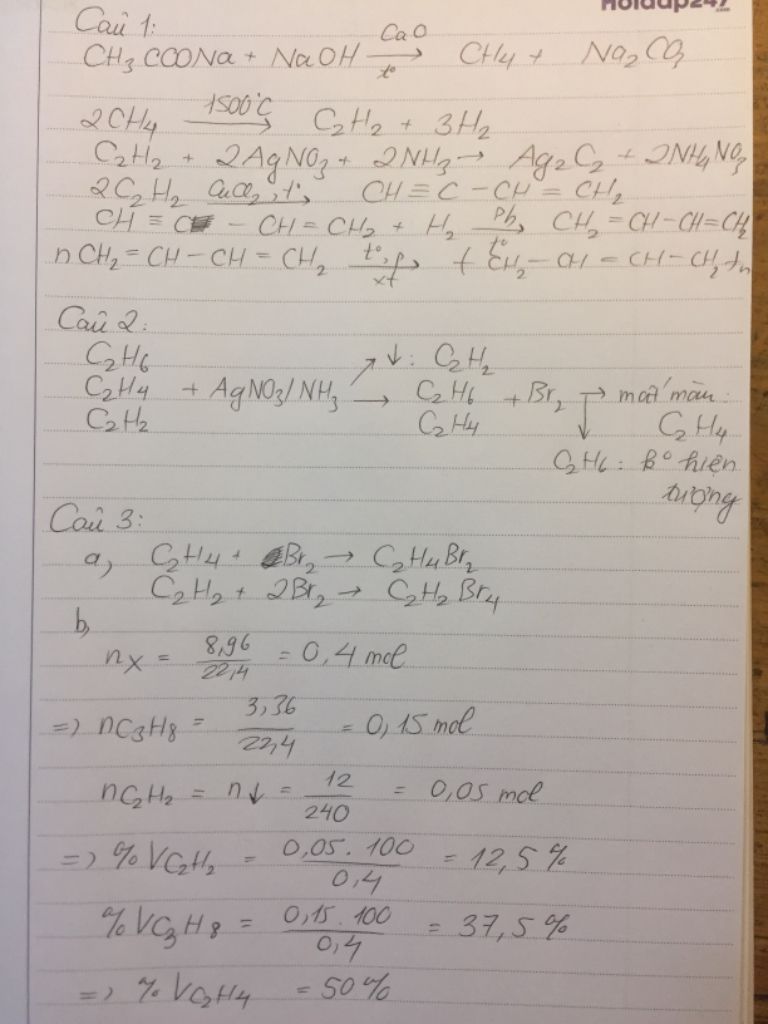 Hoidap247
Câu 1:
CH3COONa + NaOH CaO → t° CH4 + Na2CO3
2CH4 1500°C → C2H2 + 3H2
C2H2 + 2AgNO3 + 2NH3 → Ag2C2 + 2NH4NO3
2C2H2 CuCl2, t° → CH ≡ C - CH = CH2
CH ≡ C - CH = CH2 + H2 Pb → t° CH2 = CH - CH = CH2
nCH2 = CH - CH = CH2 t°, p → xt (CH2 - CH = CH - CH2)n
Câu 2:
C2H6
C2H4 + AgNO3/NH3 ↗ ↓ : C2H2
C2H2 → C2H6 + Br2 → mất màu :
C2H4 ↓ C2H4
C2H6 : k° hiện
tượng
Câu 3:
a, C2H4 + Br2 → C2H4Br2
C2H2 + 2Br2 → C2H2Br4
b,
nX = 8,96 / 22,4 = 0,4 mol
=> nC3H8 = 3,36 / 22,4 = 0,15 mol
nC2H2 = n↓ = 12 / 240 = 0,05 mol
=> %VC2H2 = 0,05 . 100 / 0,4 = 12,5 %
%VC3H8 = 0,15 . 100 / 0,4 = 37,5 %
=> %VC2H4 = 50 %